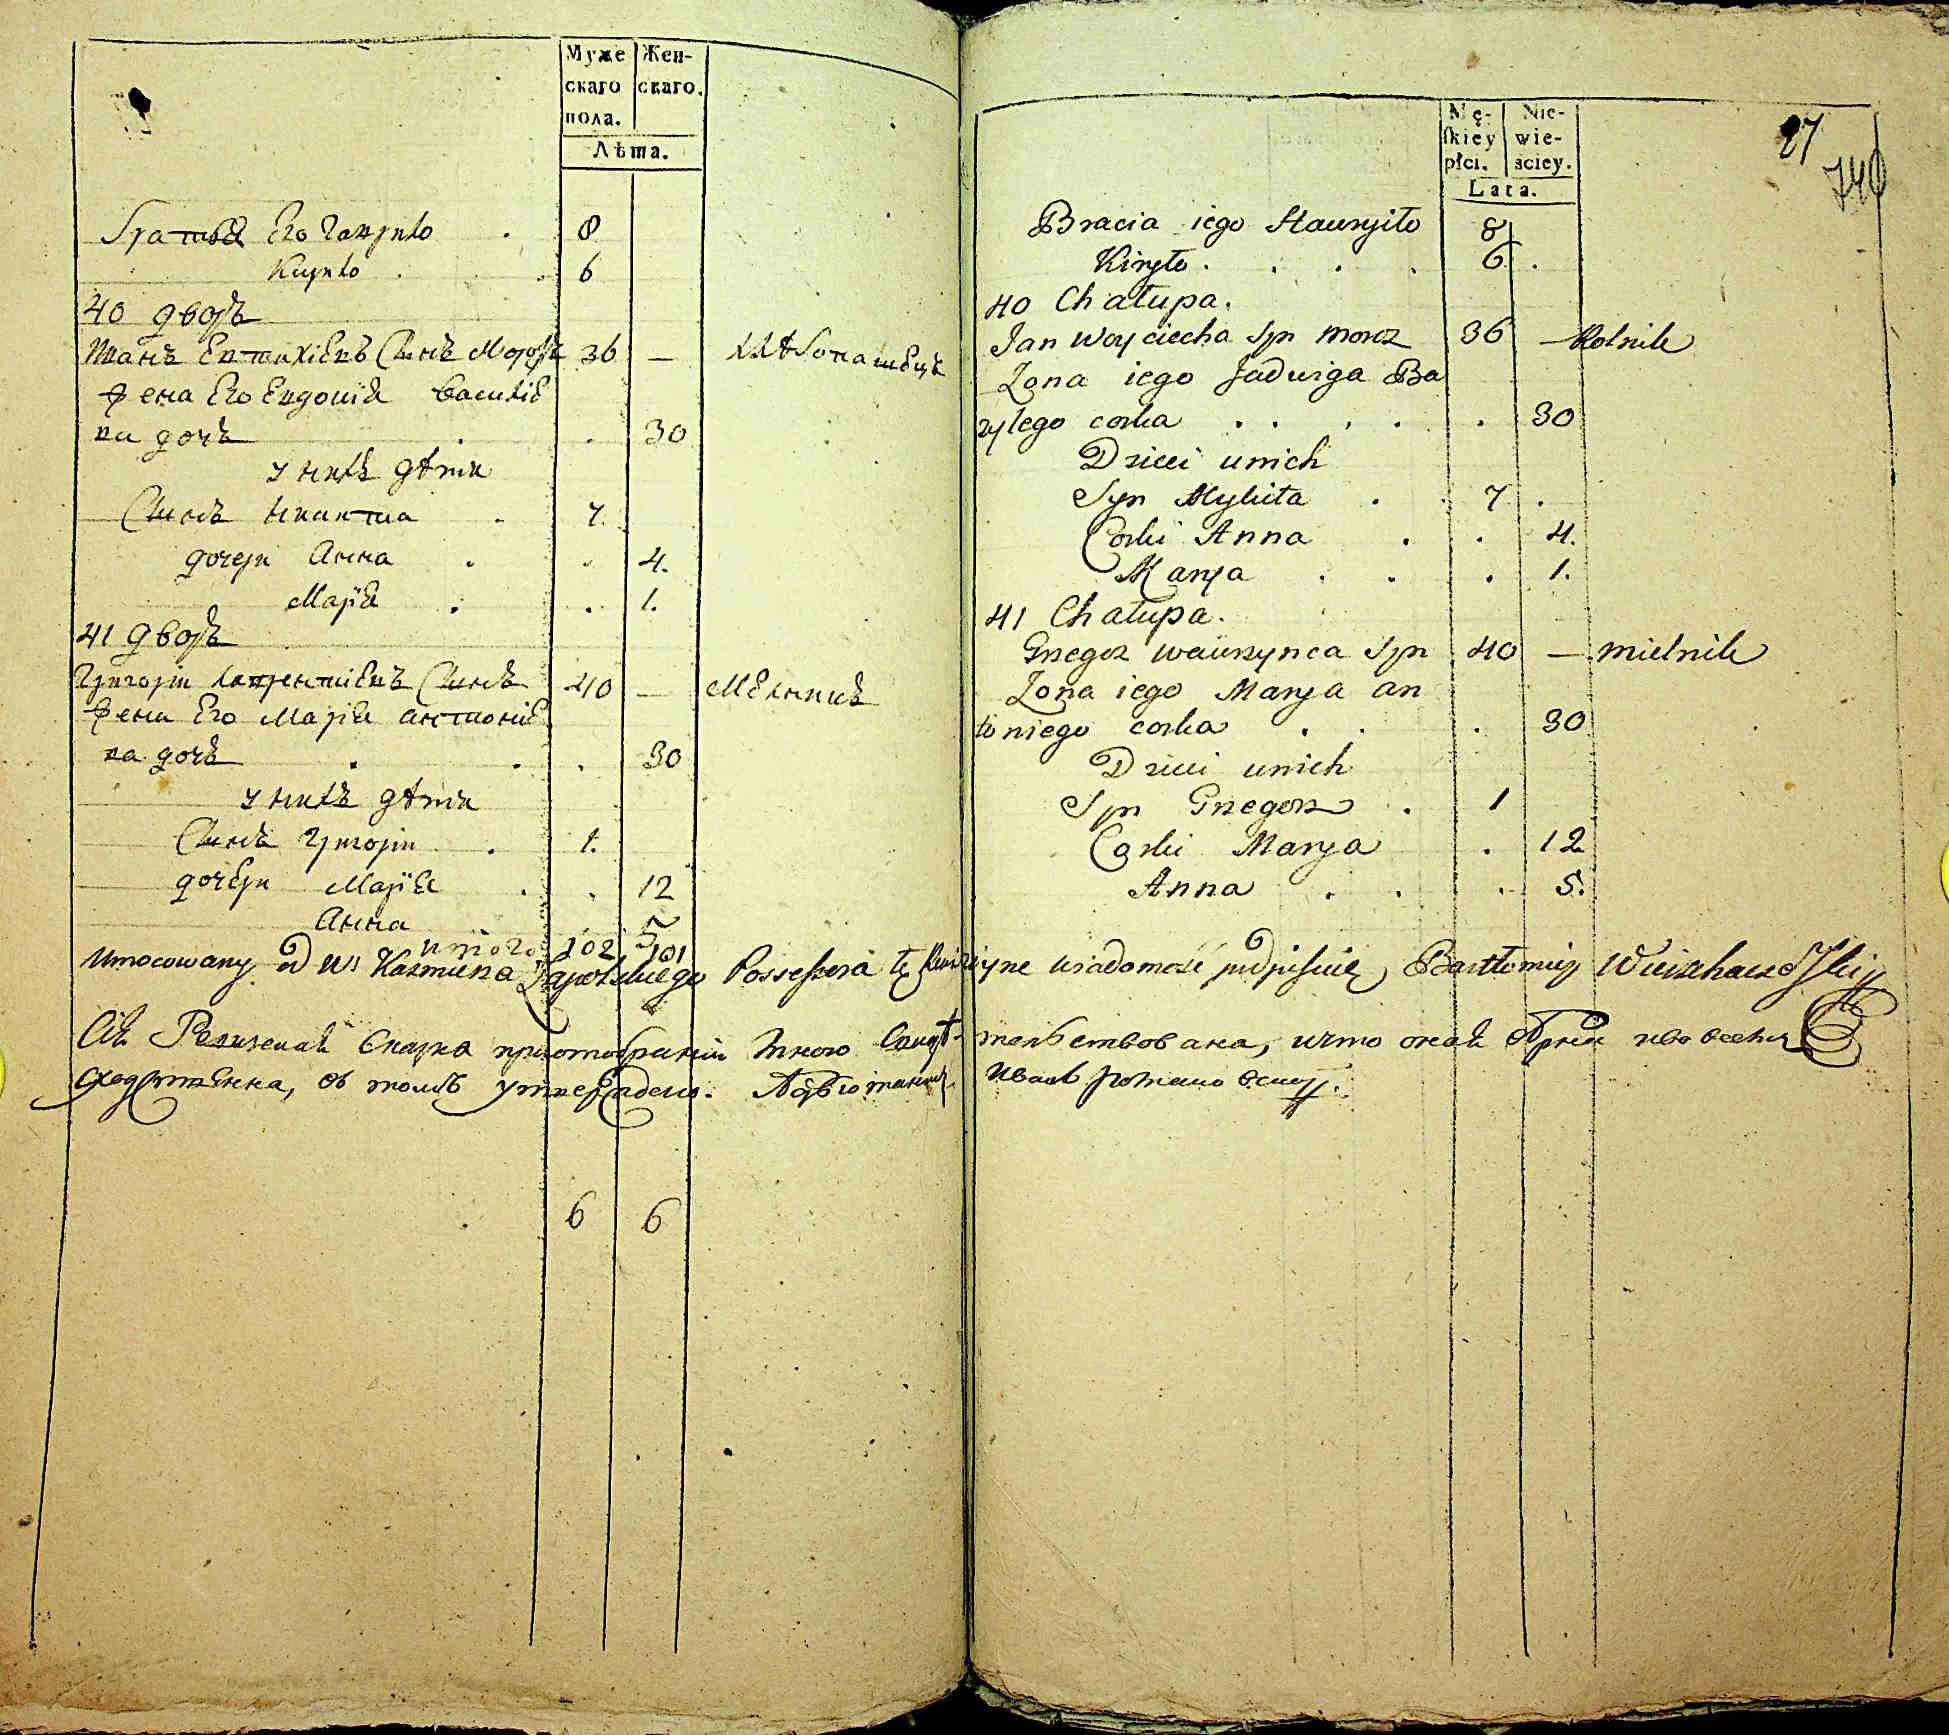 Муже Жен-
скаго скаго.
пола.
Лѣта.
Братья Его Гаврило . 8
Кирило . 6
40 дворъ
Иванъ Евтихіевъ Сынъ Морозъ 36 — хлѣбопашецъ
жена Его Евдокія Василіе
ва дочь . . 30
у нихъ дѣти
Сынъ Никита . 7.
дочери Анна . . 4.
Марія . . 1.
41 дворъ
Григорій Лаврентіевъ Сынъ 40 — Мельникъ
жена Его Марія антоніе
ва дочь . . . 30
у нихъ дѣти
Сынъ Григорій . 1.
дочери Марія . . 12
Анна 5
итого 102 101
6 6
Mę- Nie-
skiey wie-
płci. sciey.
Lata.
27
740
Bracia iego Hawryiło 8
Kiryło . . . . 6 .
40 Chałupa.
Jan Woyciecha Syn Moroz 36 — Rolnik
Zona iego Jadwiga Ba
zylego corka . . . . . 30
Dzieci unich
Syn Mykita . . 7 .
Corki Anna . . 4.
Marya . . . 1.
41 Chałupa.
Grzegorz Wawrzynca Syn 40 — mielnik
Zona iego Marya an
toniego corka . . . 30
Dzieci unich
Syn Grzegorz . 1
Corki Marya . 12
Anna . . . 5.
Umocowany od Kazmierza Possessora tę Rewizyine wiadomość podpisuię Bartłomiey
Сія Ревизская Сказка при отобраніи Мною Свидѣтельствована, и что оная во всемъ
въ томъ утверждено. Иванъ